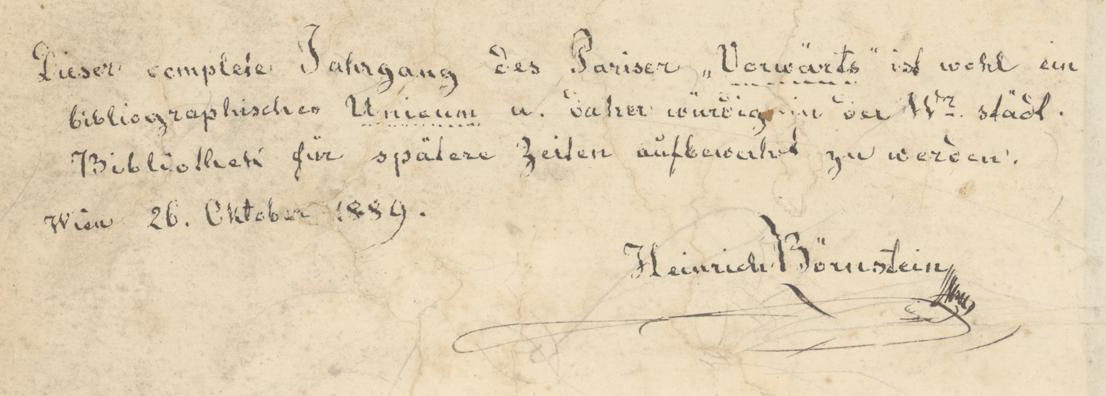 Dieser complete Jahrgang des Pariser „Vorwärts“ ist wohl ein
bibliographisches Unicum u. daher würdig in der Wnr. städt.
Bibliothek für spätere Zeiten aufbewahrt zu werden.
Wien 26. Oktober 1889.
Heinrich Börnstein